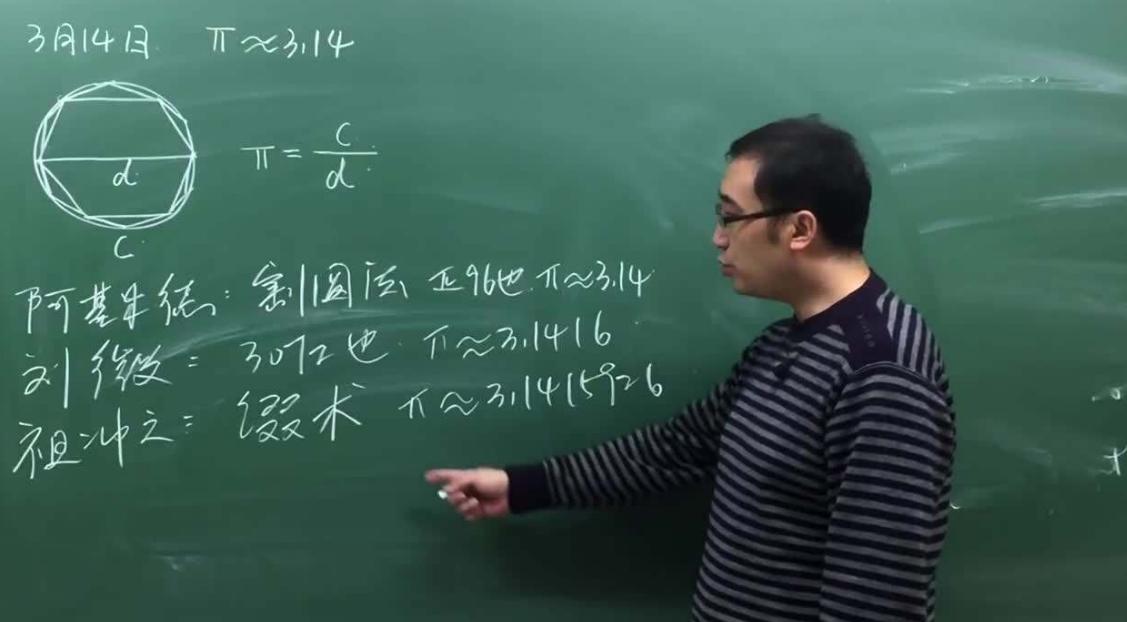 3月14日 π≈3.14
d
π=c/d
C
阿基米德:割圆法 正96边 π≈3.14
刘徽: 3072边 π≈3.1416
祖冲之: 缀术 π≈3.1415926